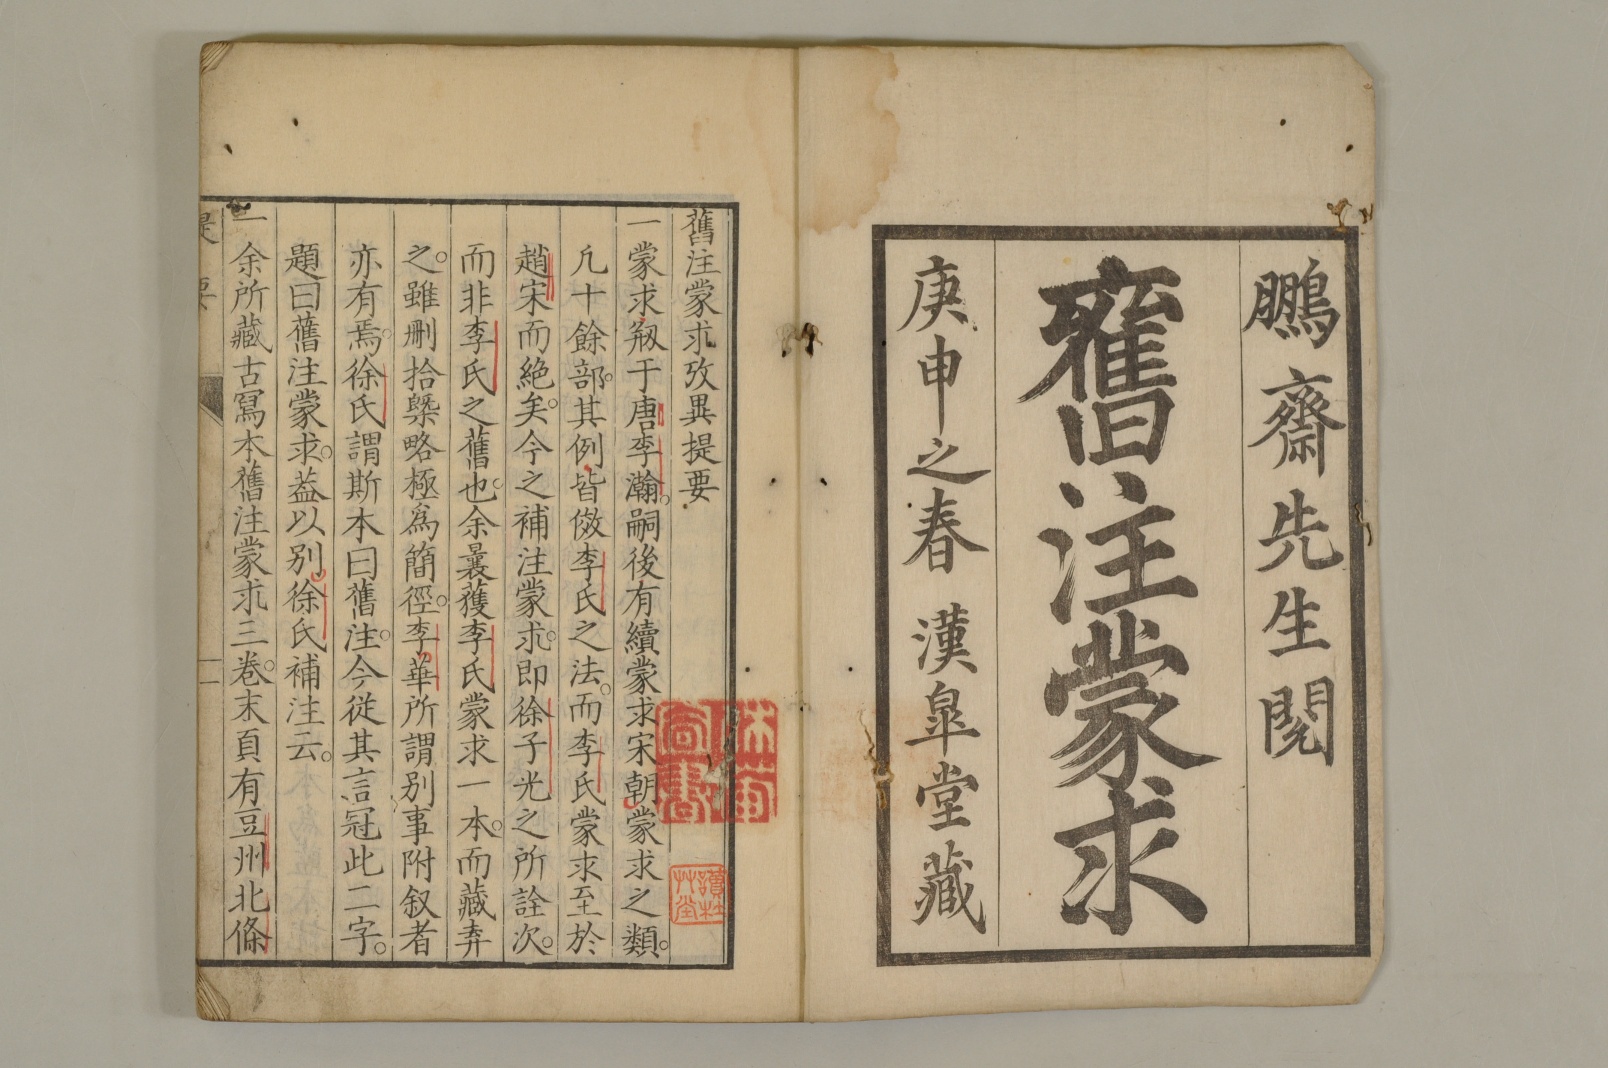 鵬齋先生閱
舊注蒙求
庚申之春 漢皐堂藏
舊注蒙求攷異提要
一蒙求剏于唐李瀚。嗣後有續蒙求宋朝蒙求之類。
凡十餘部。其例皆倣李氏之法。而李氏蒙求至於
趙宋而絶矣。今之補注蒙求。卽徐子光之所詮次。
而非李氏之舊也。余曩獲李氏蒙求一本。而藏弆
之。雖刪拾槩略極爲簡徑。李華所謂別事附叙者
亦有焉。徐氏謂斯本曰舊注。今從其言冠此二字。
題曰舊注蒙求。葢以別徐氏補注云。
一余所藏古寫本舊注蒙求三卷。末頁有豆州北條
提要 一
讀杜艸堂